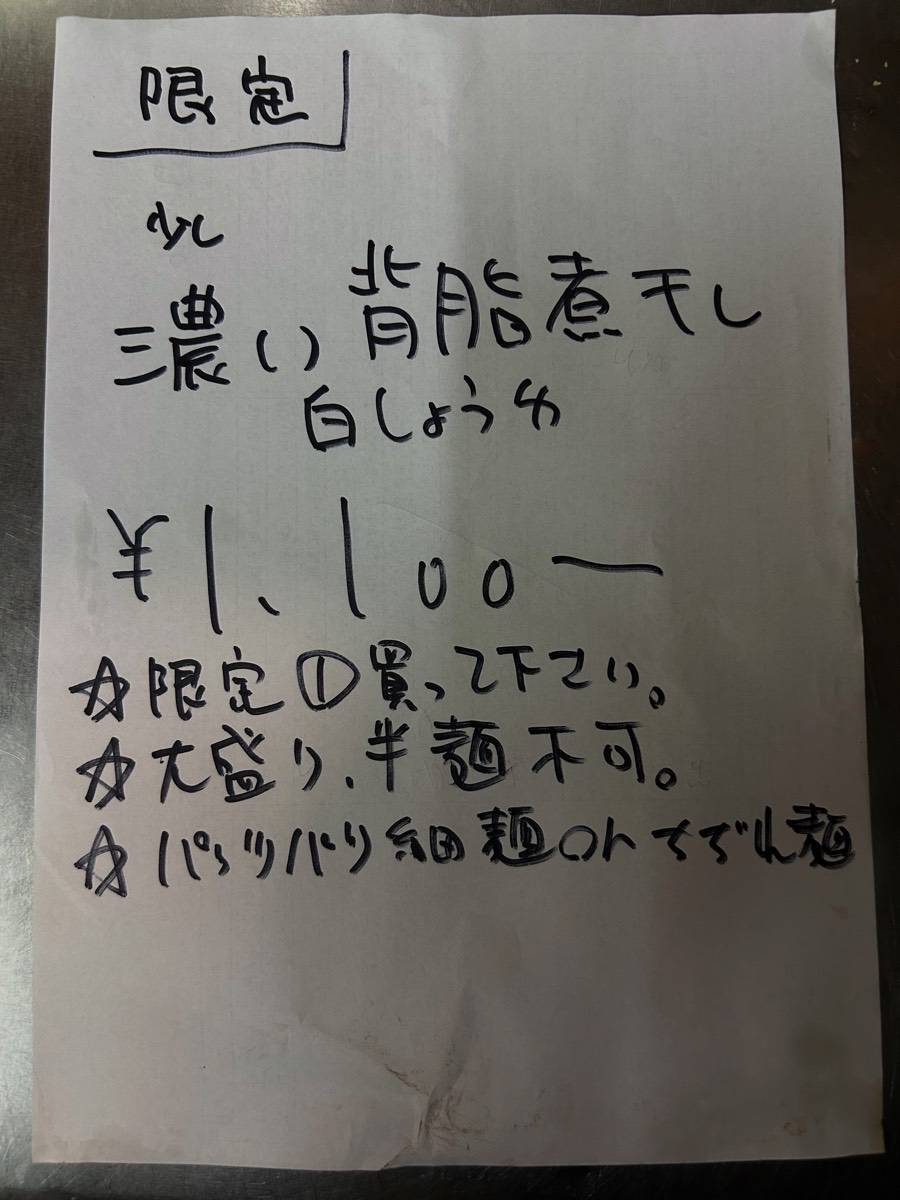 限定
少し
濃い背脂煮干し
白しょうゆ
¥1、100ー
☆限定①買って下さい。
☆大盛り、半麺不可。
☆パッツパツ細麺orちぢれ麺